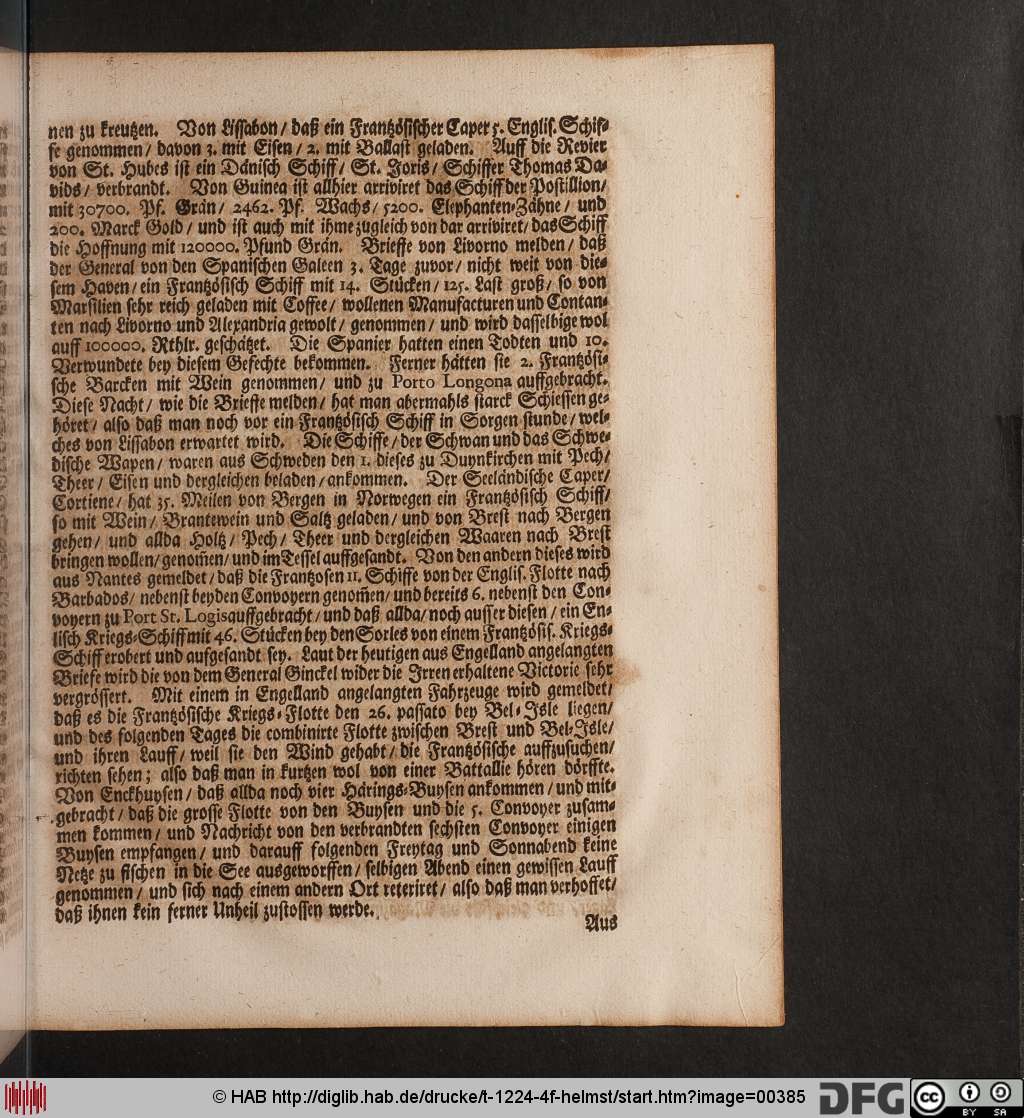 nen zu kreutzen. Von Lissabon / daß ein Frantzösischer Caper 5. Englis. Schif-
fe genommen / davon 3. mit Eisen / 2. mit Ballast geladen. Auff die Revier
von St. Hubes ist ein Dänisch Schiff / St. Joris / Schiffer Thomas Da-
vids / verbrandt. Von Guinea ist allhier arriviret das Schiff der Postillion /
mit 30700. Pf. Grän / 2462. Pf. Wachs / 5200. Elephanten-Zähne / und
200. Marck Gold / und ist auch mit ihme zugleich von dar arriviret / das Schiff
die Hoffnung mit 120000. Pfund Grän. Brieffe von Livorno melden / daß
der General von den Spanischen Galeen 3. Tage zuvor / nicht weit von die-
sem Haven / ein Frantzösisch Schiff mit 14. Stücken / 125. Last groß / so von
Marsilien sehr reich geladen mit Coffee / wollenen Manufacturen und Contan-
ten nach Livorno und Alexandria gewolt / genommen / und wird dasselbige wol
auff 100000. Rthlr. geschätzet. Die Spanier hatten einen Todten und 10.
Verwundete bey diesem Gefechte bekommen. Ferner hätten sie 2. Frantzösi-
sche Barcken mit Wein genommen / und zu Porto Longona auffgebracht.
Diese Nacht / wie die Brieffe melden / hat man abermahls starck Schiessen ge-
höret / also daß man noch vor ein Frantzösisch Schiff in Sorgen stunde / wel-
ches von Lissabon erwartet wird. Die Schiffe / der Schwan und das Schwe-
dische Wapen / waren aus Schweden den 1. dieses zu Duynkirchen mit Pech /
Theer / Eisen und dergleichen beladen / ankommen. Der Seeländische Caper /
Cortiene / hat 35. Meilen von Bergen in Norwegen ein Frantzösisch Schiff /
so mit Wein / Brantewein und Saltz geladen / und von Brest nach Bergen
gehen / und allda Holtz / Pech / Theer und dergleichen Waaren nach Brest
bringen wollen / genom̃en / und im Tessel auffgesandt. Von den andern dieses wird
aus Nantes gemeldet / daß die Frantzosen 11. Schiffe von der Englis. Flotte nach
Barbados / nebenst beyden Convoyern genom̃en / und bereits 6. nebenst den Con-
voyern zu Port St. Logis auffgebracht / und daß allda / noch ausser diesen / ein En-
lisch Kriegs-Schiff mit 46. Stücken bey den Sorles von einem Frantzösis. Kriegs-
Schiff erobert und aufgesandt sey. Laut der heutigen aus Engelland angelangten
Briefe wird die von dem General Ginckel wider die Irren erhaltene Victorie sehr
vergrössert. Mit einem in Engelland angelangten Fahrzeuge wird gemeldet /
daß es die Frantzösische Kriegs-Flotte den 26. passato bey Bel-Isle liegen /
und des folgenden Tages die combinirte Flotte zwischen Brest und Bel-Isle /
und ihren Lauff / weil sie den Wind gehabt / die Frantzösische auffzusuchen /
richten sehen; also daß man in kurtzen wol von einer Battallie hören dörffte.
Von Enckhuysen / daß allda noch vier Härings-Buysen ankommen / und mit-
gebracht / daß die grosse Flotte von den Buysen und die 5. Convoyer zusam-
men kommen / und Nachricht von den verbrandten sechsten Convoyer einigen
Buysen empfangen / und darauff folgenden Freytag und Sonnabend keine
Netze zu fischen in die See ausgeworffen / selbigen Abend einen gewissen Lauff
genommen / und sich nach einem andern Ort reteriret / also daß man verhoffet /
daß ihnen kein ferner Unheil zustossen werde.
Aus
© HAB http://diglib.hab.de/drucke/t-1224-4f-helmst/start.htm?image=00385
DFG
cc
BY SA